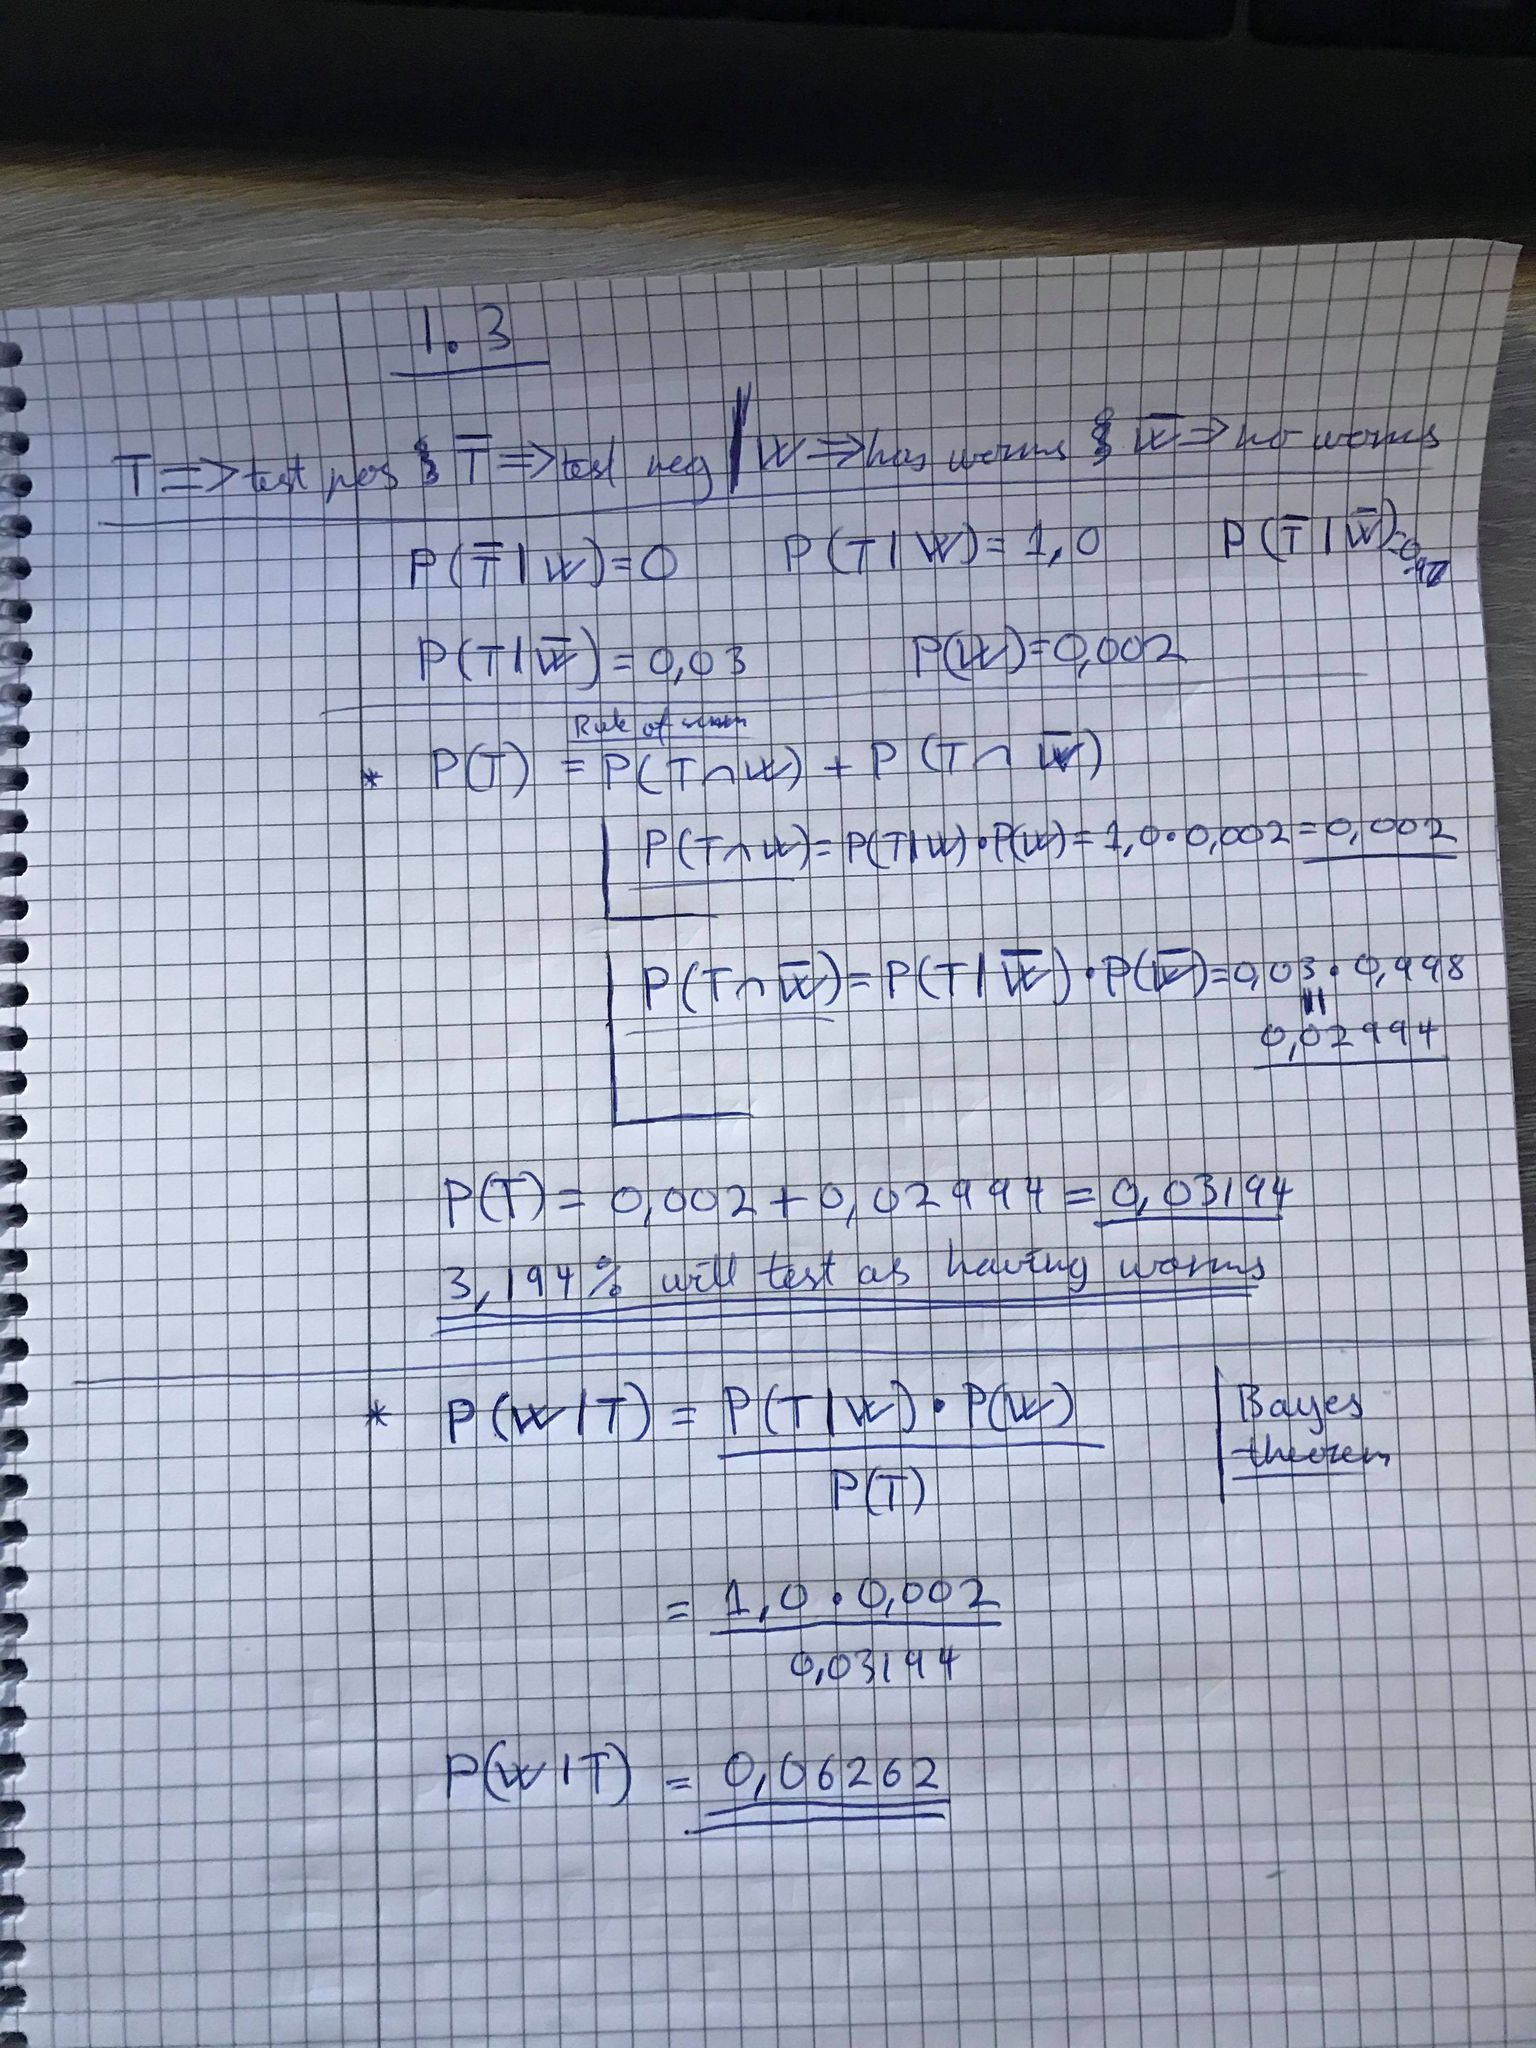 1.3
T => test pos & T̅ => test neg | W => has worms & W̅ => no worms
P(T̅|W)=0 P(T|W)=1,0 P(T̅|W̅)=0,97
P(T|W̅)=0,03 P(W)=0,002
Rule of sum
* P(T) = P(T∩W) + P(T∩W̅)
P(T∩W)=P(T|W)·P(W)=1,0·0,002=0,002
P(T∩W̅)=P(T|W̅)·P(W̅)=0,03·0,998
=
0,02994
P(T)=0,002+0,02994=0,03194
3,194% will test as having worms
* P(W|T) = P(T|W)·P(W) | Bayes
theorem
P(T)
= 1,0·0,002
0,03194
P(W|T) = 0,06262